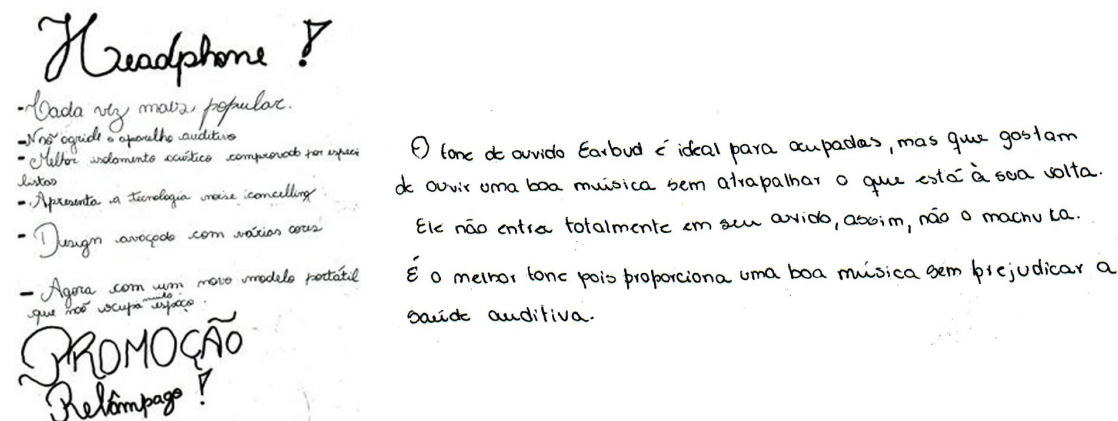 Headphone !
- Cada vez mais popular.
- Não agride o aparelho auditivo
- Melhor isolamento acústico comprovado por especi
listas
- Apresenta a tecnologia noise cancelling.
- Design avoçado com vários cores
- Agora com um novo modelo portátil
que não ocupa muito espaço.
PROMOÇÃO
Relâmpago !
O fone de ouvido Earbud é ideal para ocupadas, mas que gostam
de ouvir uma boa música sem atrapalhar o que está à sua volta.
Ele não entra totalmente em seu ouvido, assim, não o machuca.
É o melhor fone pois proporciona uma boa música sem prejudicar a
saúde auditiva.